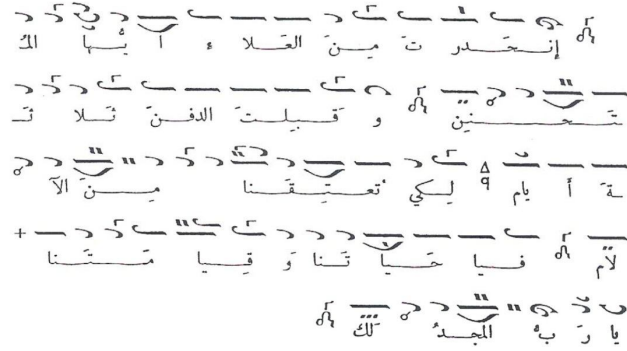 إنـحَـدر تَ مِـنَ العَـلا ء أ يُّـهَا المُـ
ـتَـحَــنـنِـن و قَـبِـلـتَ الدفـنَ ثَـلا ثَـ
ـةَ أ يَّام لِـكي تُعـتِـقَـنا مِـنَ الآ
لام فـيـا حَـيـا تَـنا وَ قِـيـا مَـتَـنـا
يا رَ بُّ المجـدُ لَكَ